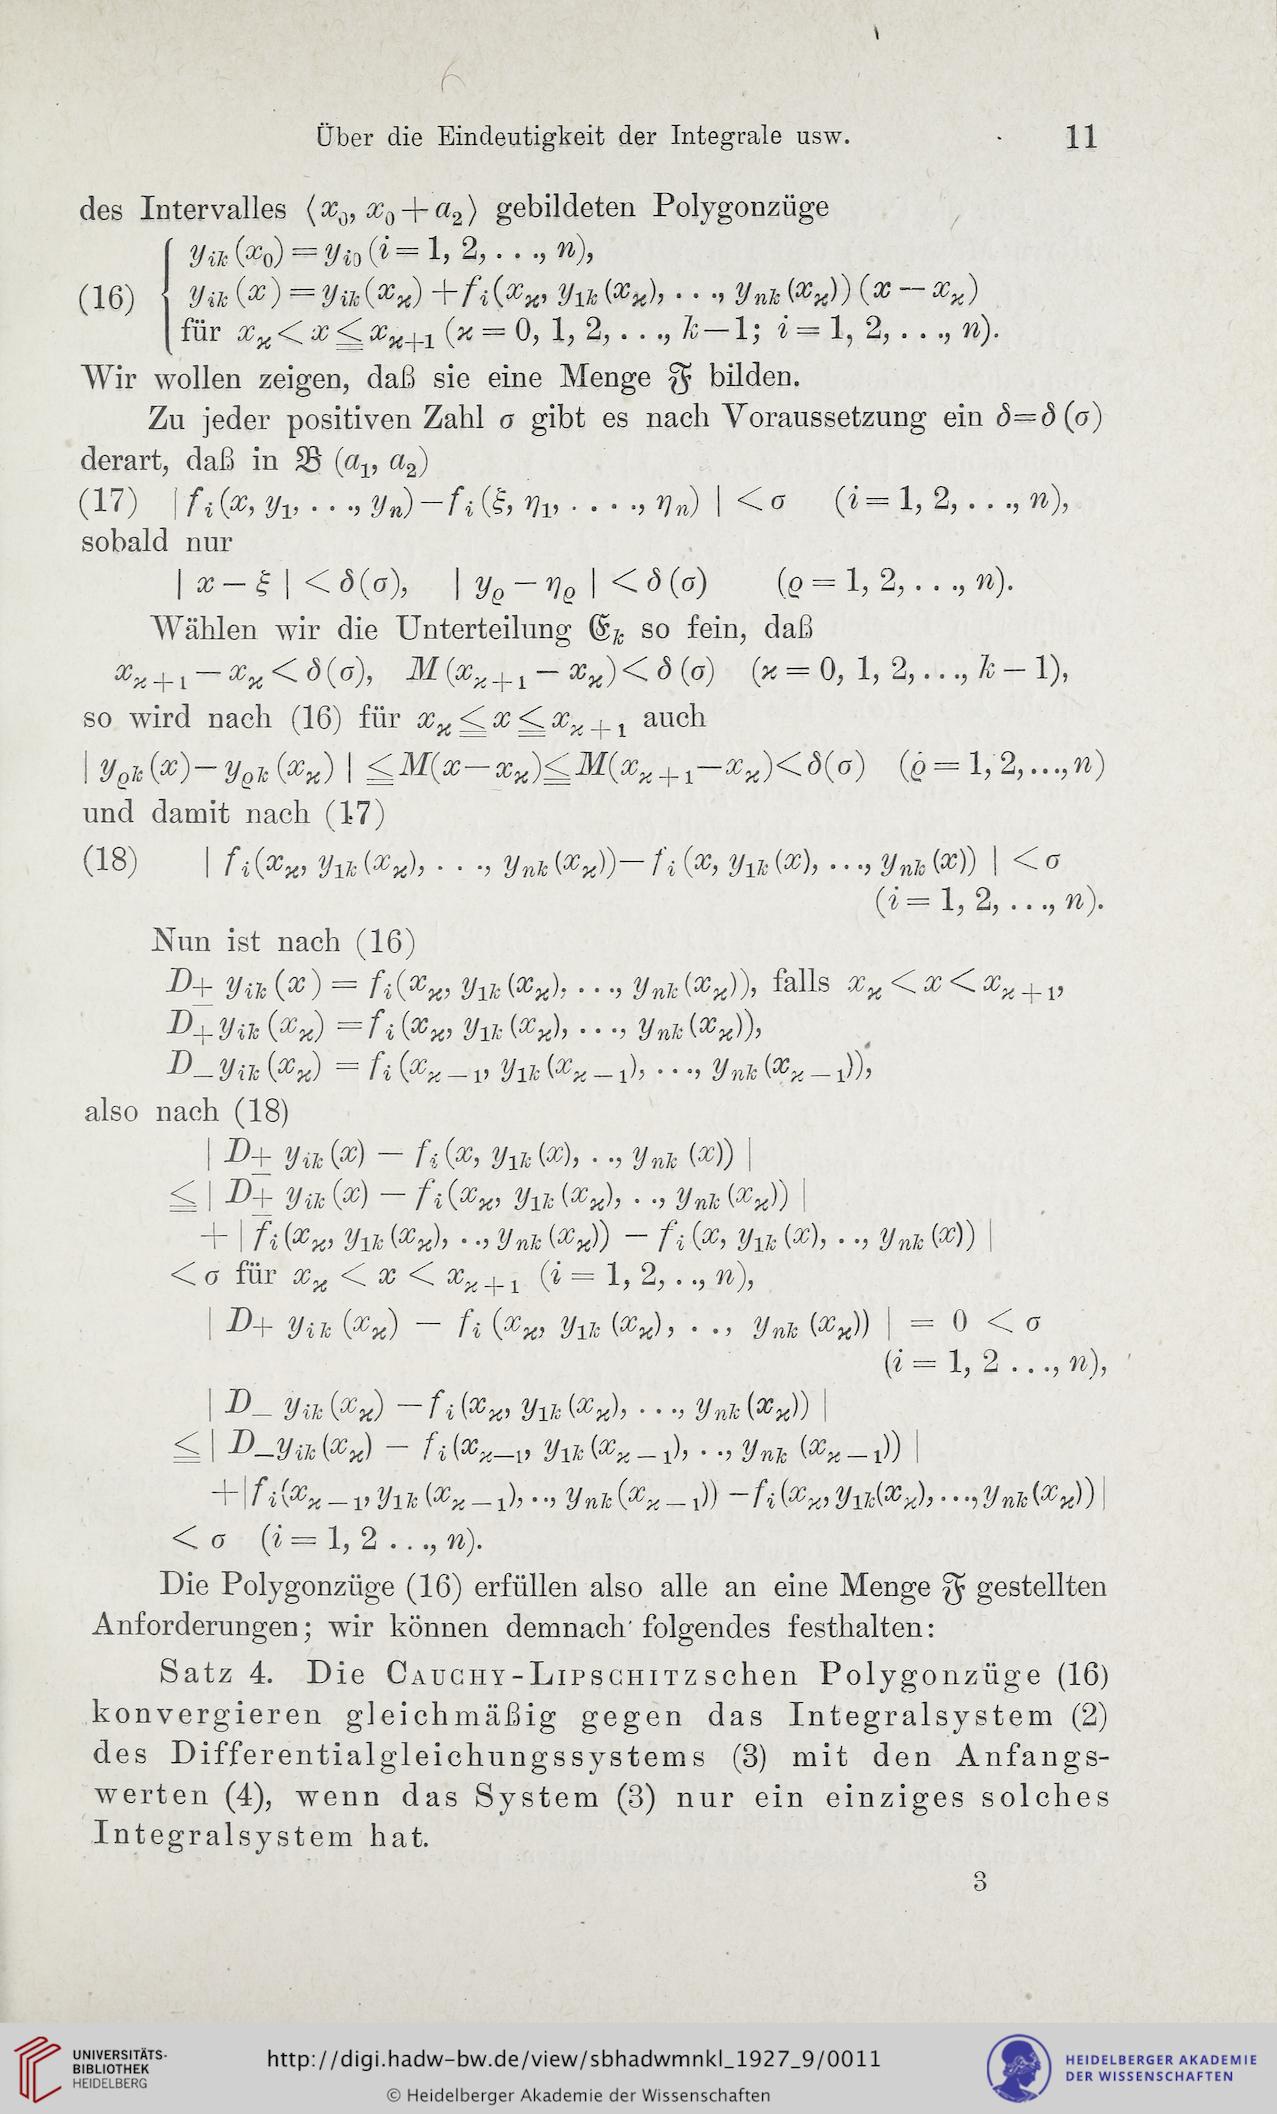 Über die Eindeutigkeit der Integrale usw. 11
des Intervalles ⟨x₀, x₀ + a₂⟩ gebildeten Polygonzüge
y_{ik}(x₀) = y_{i0} (i = 1, 2, . . ., n),
(16) y_{ik}(x) = y_{ik}(x_ϰ) + f_i(x_ϰ, y_{1k}(x_ϰ), . . ., y_{nk}(x_ϰ)) (x — x_ϰ)
für x_ϰ < x ≦ x_{ϰ+1} (ϰ = 0, 1, 2, . . ., k—1; i = 1, 2, . . ., n).
Wir wollen zeigen, daß sie eine Menge 𝔉 bilden.
Zu jeder positiven Zahl σ gibt es nach Voraussetzung ein δ=δ(σ)
derart, daß in 𝔅 (a₁, a₂)
(17) | f_i(x, y₁, . . ., y_n) — f_i(ξ, η₁, . . . ., η_n) | < σ (i = 1, 2, . . ., n),
sobald nur
| x — ξ | < δ(σ), | y_ϱ — η_ϱ | < δ(σ) (ϱ = 1, 2, . . ., n).
Wählen wir die Unterteilung 𝔈_k so fein, daß
x_{ϰ+1} — x_ϰ < δ(σ), M(x_{ϰ+1} — x_ϰ) < δ(σ) (ϰ = 0, 1, 2, . . ., k — 1),
so wird nach (16) für x_ϰ ≦ x ≦ x_{ϰ+1} auch
| y_{ϱk}(x) — y_{ϱk}(x_ϰ) | ≦ M(x — x_ϰ) ≦ M(x_{ϰ+1} — x_ϰ) < δ(σ) (ϱ = 1, 2, ..., n)
und damit nach (17)
(18) | f_i(x_ϰ, y_{1k}(x_ϰ), . . ., y_{nk}(x_ϰ)) — f_i(x, y_{1k}(x), . . ., y_{nk}(x)) | < σ
(i = 1, 2, . . ., n).
Nun ist nach (16)
D_± y_{ik}(x) = f_i(x_ϰ, y_{1k}(x_ϰ), . . ., y_{nk}(x_ϰ)), falls x_ϰ < x < x_{ϰ+1},
D_+ y_{ik}(x_ϰ) = f_i(x_ϰ, y_{1k}(x_ϰ), . . ., y_{nk}(x_ϰ)),
D_— y_{ik}(x_ϰ) = f_i(x_{ϰ—1}, y_{1k}(x_{ϰ—1}), . . ., y_{nk}(x_{ϰ—1})),
also nach (18)
| D_± y_{ik}(x) — f_i(x, y_{1k}(x), . ., y_{nk}(x)) |
≦ | D_± y_{ik}(x) — f_i(x_ϰ, y_{1k}(x_ϰ), . ., y_{nk}(x_ϰ)) |
+ | f_i(x_ϰ, y_{1k}(x_ϰ), . ., y_{nk}(x_ϰ)) — f_i(x, y_{1k}(x), . ., y_{nk}(x)) |
< σ für x_ϰ < x < x_{ϰ+1} (i = 1, 2, . ., n),
| D_+ y_{ik}(x_ϰ) — f_i(x_ϰ, y_{1k}(x_ϰ), . ., y_{nk}(x_ϰ)) | = 0 < σ
(i = 1, 2 . . ., n),
| D_— y_{ik}(x_ϰ) — f_i(x_ϰ, y_{1k}(x_ϰ), . . ., y_{nk}(x_ϰ)) |
≦ | D_— y_{ik}(x_ϰ) — f_i(x_{ϰ—1}, y_{1k}(x_{ϰ—1}), . ., y_{nk}(x_{ϰ—1})) |
+ | f_i(x_{ϰ—1}, y_{1k}(x_{ϰ—1}), . ., y_{nk}(x_{ϰ—1})) — f_i(x_ϰ, y_{1k}(x_ϰ), . . ., y_{nk}(x_ϰ)) |
< σ (i = 1, 2 . . ., n).
Die Polygonzüge (16) erfüllen also alle an eine Menge 𝔉 gestellten
Anforderungen; wir können demnach folgendes festhalten:
Satz 4. Die CAUCHY-LIPSCHITZschen Polygonzüge (16)
konvergieren gleichmäßig gegen das Integralsystem (2)
des Differentialgleichungssystems (3) mit den Anfangs-
werten (4), wenn das System (3) nur ein einziges solches
Integralsystem hat.
3
UNIVERSITÄTS-
BIBLIOTHEK
HEIDELBERG
http://digi.hadw-bw.de/view/sbhadwmnkl_1927_9/0011
© Heidelberger Akademie der Wissenschaften
HEIDELBERGER AKADEMIE
DER WISSENSCHAFTEN